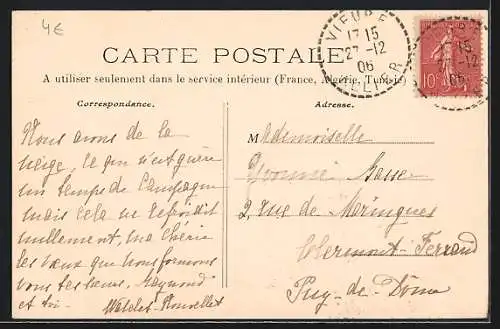 4€
VIEURE
17 15
27-12
06
ALLIER
10
CARTE POSTALE
A utiliser seulement dans le service intérieur (France, Algérie, Tunisie)
Correspondance.
Adresse.
Nous avons de la
neige, ce qui n'est guère
un temps de Campagne
mais cela ne refroidit
nullement, ma chérie
les vœux que nous formons
vous tes Raymond
et toi.
Mademoiselle
Yvonne
2, rue de Maringues
Clermont-Ferrand
Puy-de-Dôme